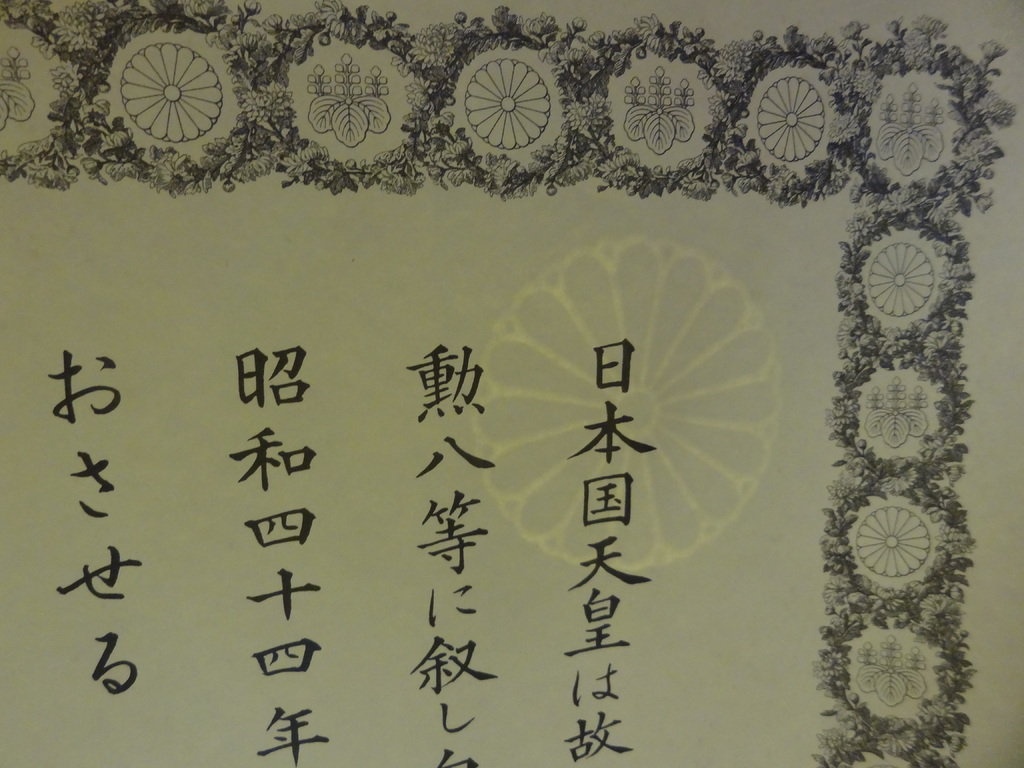 日本国天皇は故
勲八等に叙し
昭和四十四年
おさせる